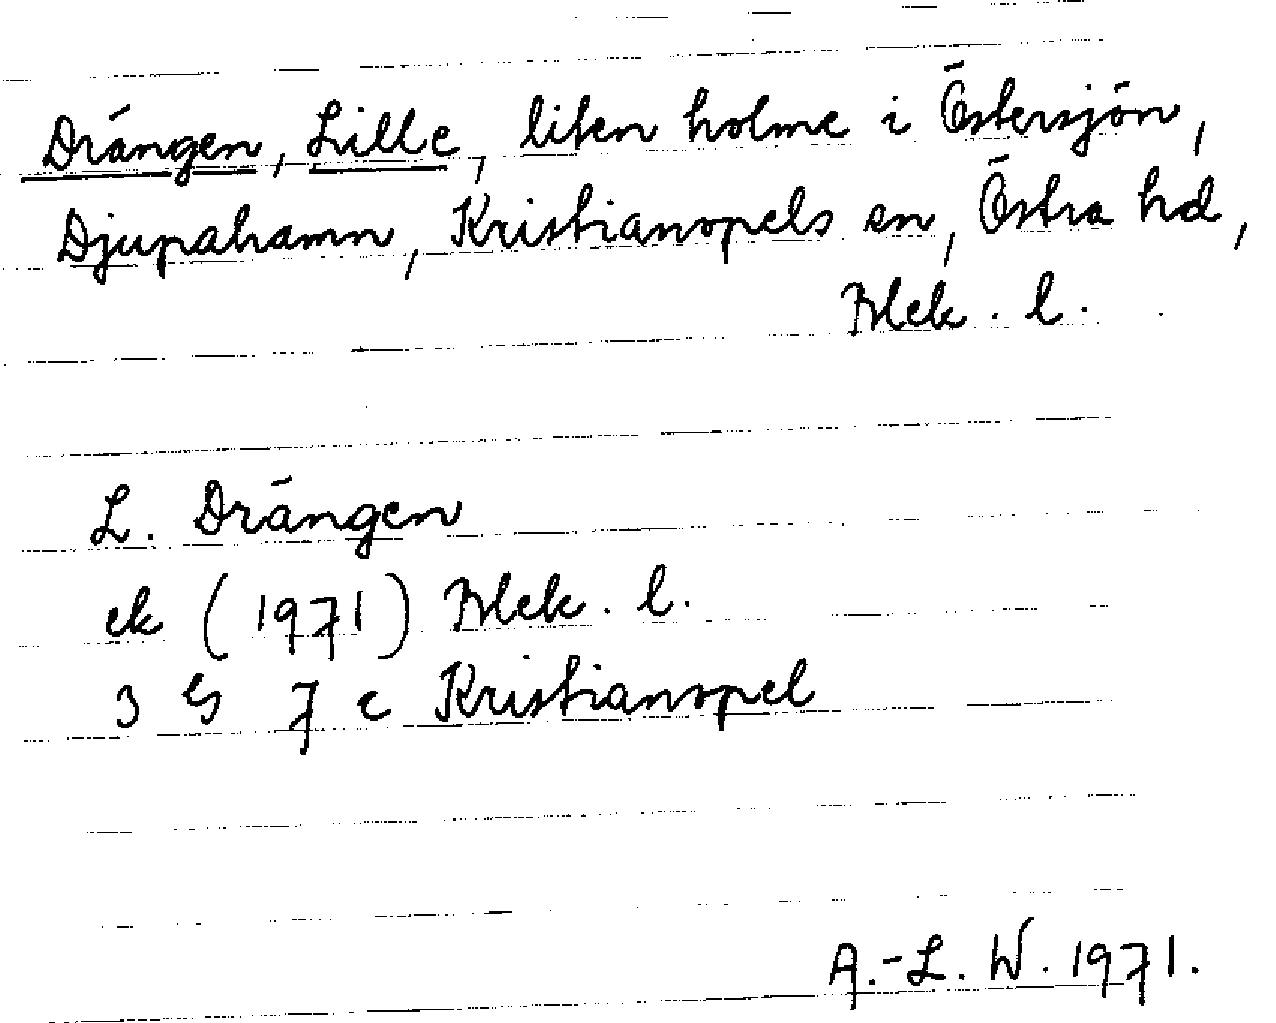 Drängen, Lille, liten holme i Östersjön,
Djupahamn, Kristianopels sn, Östra hd,
Blek. l.
L. Drängen
ek (1971) Blek. l.
3 G 7 c Kristianopel
A.-L. W. 1971.